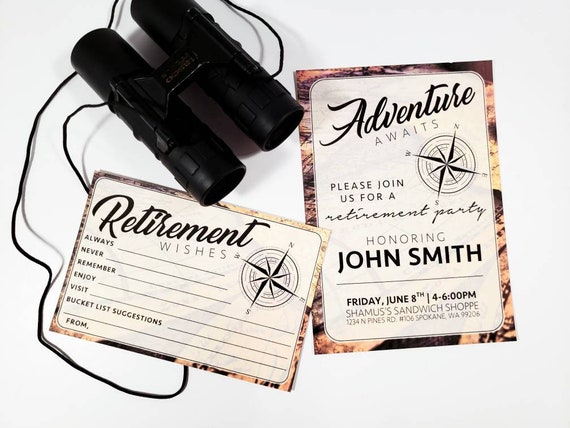 Retirement
WISHES
ALWAYS
NEVER
REMEMBER
ENJOY
VISIT
BUCKET LIST SUGGESTIONS
FROM,
N
E
S
W
Adventure
AWAITS
N
E
S
W
PLEASE JOIN
US FOR A
retirement party
HONORING
JOHN SMITH
FRIDAY, JUNE 8TH | 4-6:00PM
SHAMUS'S SANDWICH SHOPPE
1234 N PINES RD. #106 SPOKANE, WA 99206